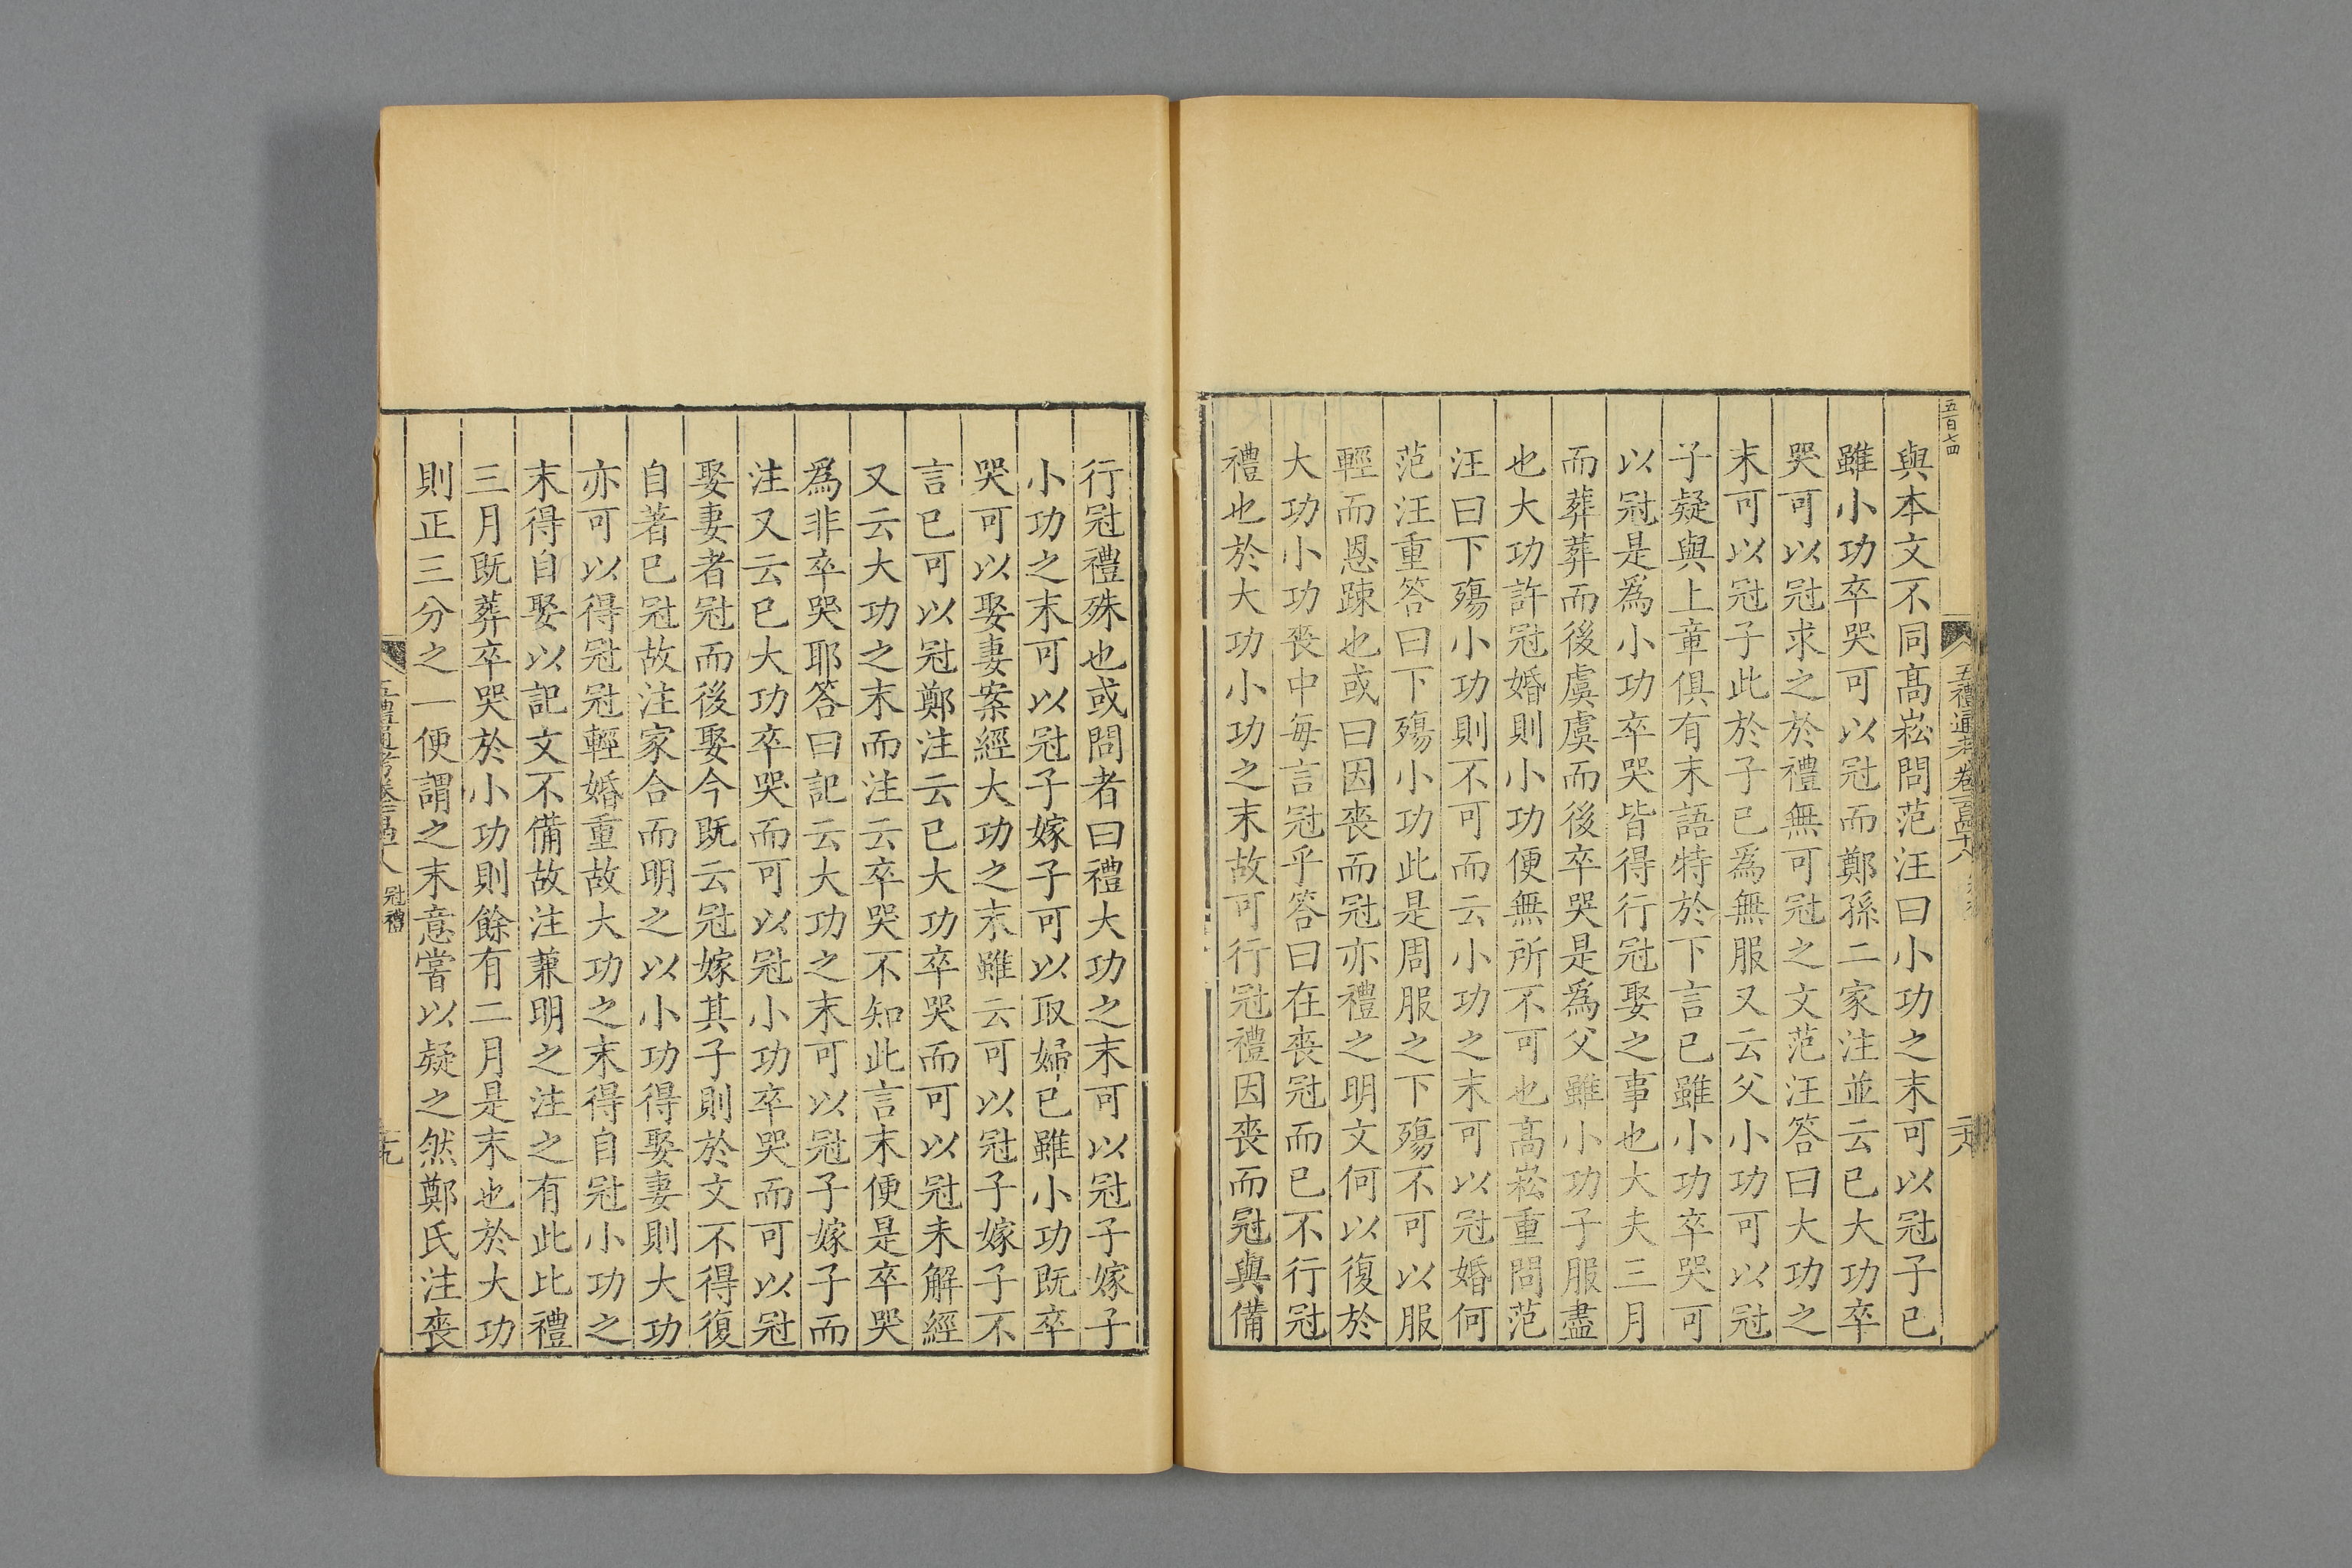 五百七四
五禮通考卷一百四十八
與本文不同髙崧問范汪曰小功之末可以冠子已
雖小功卒哭可以冠而鄭孫二家注並云已大功卒
哭可以冠求之於禮無可冠之文范汪答曰大功之
末可以冠子此於子已爲無服又云父小功可以冠
子疑與上章俱有末語特於下言已雖小功卒哭可
以冠是爲小功卒哭皆得行冠娶之事也大夫三月
而葬葬而後虞虞而後卒哭是爲父雖小功子服盡
也大功許冠婚則小功便無所不可也髙崧重問范
汪曰下殤小功則不可而云小功之末可以冠婚何
范汪重答曰下殤小功此是周服之下殤不可以服
輕而恩踈也或曰因喪而冠亦禮之明文何以復於
大功小功喪中毎言冠乎答曰在喪冠而已不行冠
禮也於大功小功之末故可行冠禮因喪而冠與備
行冠禮殊也或問者曰禮大功之末可以冠子嫁子
小功之末可以冠子嫁子可以取婦已雖小功既卒
哭可以娶妻案經大功之末雖云可以冠子嫁子不
言已可以冠鄭注云已大功卒哭而可以冠未解經
又云大功之末而注云卒哭不知此言末便是卒哭
爲非卒哭耶答曰記云大功之末可以冠子嫁子而
注又云已大功卒哭而可以冠小功卒哭而可以冠
娶妻者冠而後娶今既云冠嫁其子則於文不得復
自著已冠故注家合而明之以小功得娶妻則大功
亦可以得冠冠輕婚重故大功之末得自冠小功之
末得自娶以記文不備故注兼明之注之有此比禮
三月既葬卒哭於小功則餘有二月是末也於大功
則正三分之一便謂之末意嘗以疑之然鄭氏注喪
冠禮